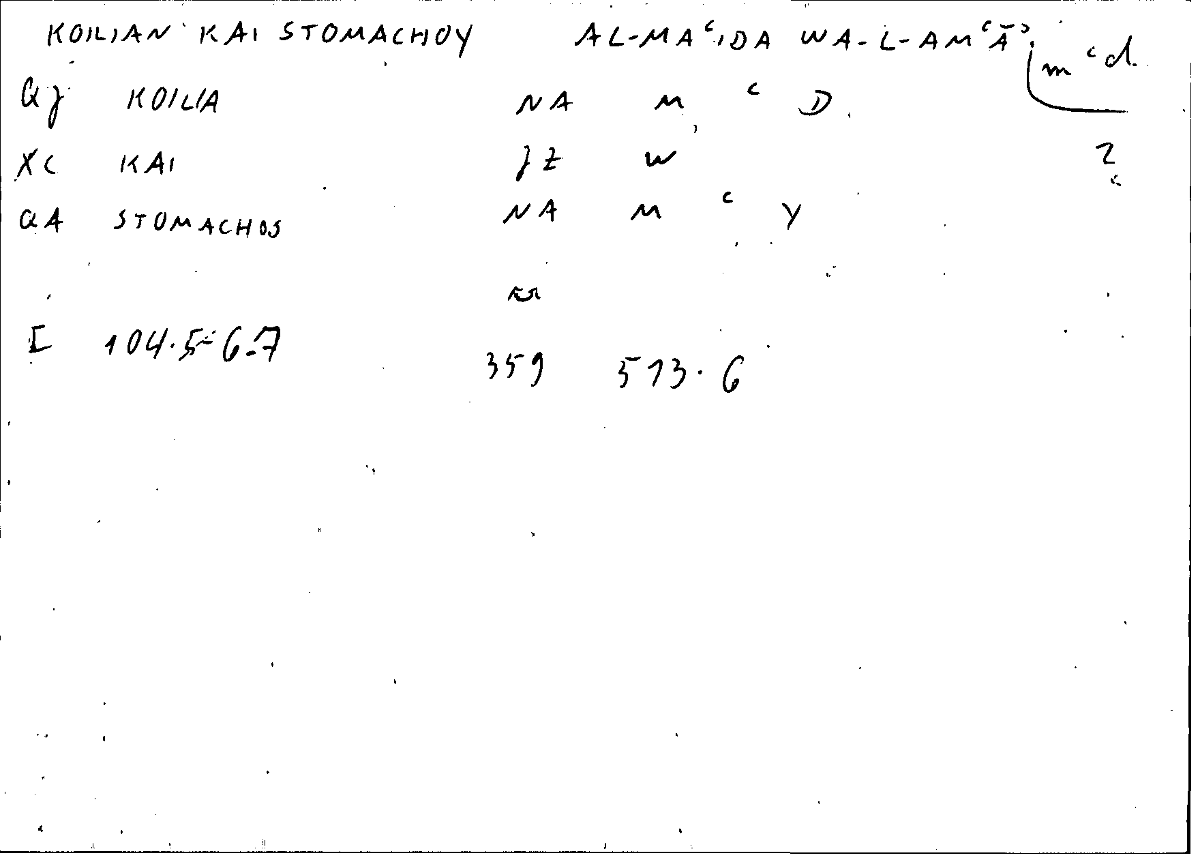 KOILIAN KAI STOMACHOY AL-MAʿIDA WA-L-AMʿĀʾ mʿd
QJ KOILIA NA M ʿ D
XC KAI JZ W 2
QA STOMACHOS NA M ʿ Y
I 104.5-6.7 359 513.6